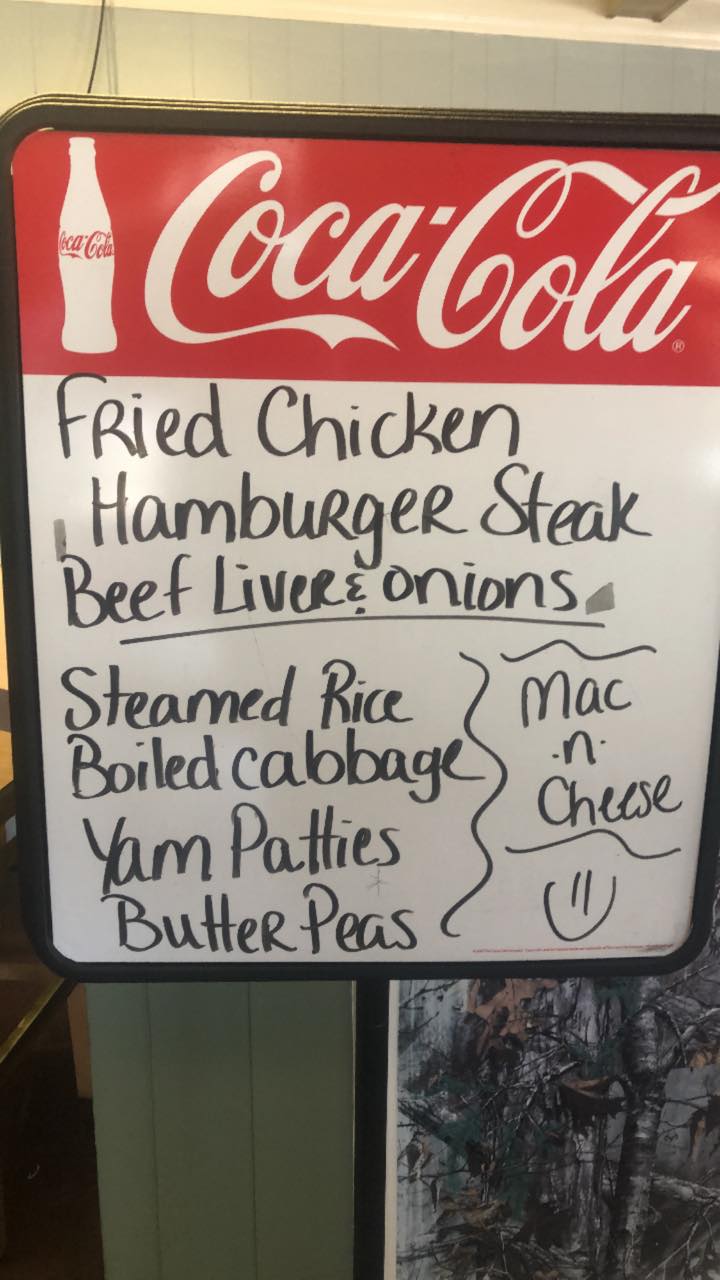 Coca-Cola
Coca-Cola®
Fried Chicken
Hamburger Steak
Beef Liver & Onions
Steamed Rice
Boiled Cabbage
Yam Patties
Butter Peas
Mac
-n-
Cheese